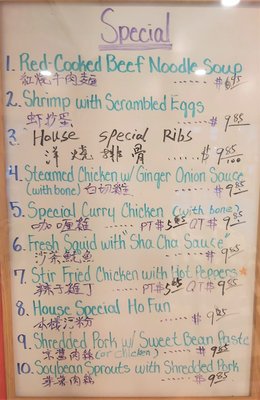 Special
1. Red-Cooked Beef Noodle Soup
紅燒牛肉麵 ...... $6.95
2. Shrimp with Scrambled Eggs
虾炒蛋 ...... $9.85
3 House special Ribs
洋燒排骨 ...... $9.85
4. Steamed Chicken w/ Ginger Onion Sauce
(with bone) 白切雞 ...... $9.85
5. Special Curry Chicken (with bone)
咖喱雞 ...... PT $5.85 QT $9.85
6. Fresh Squid with Sha Cha Sauce
沙茶鱿鱼 ...... $9.85
7. Stir Fried Chicken with Hot Peppers
辣子雞丁 PT $5.85 QT $9.85
8. House Special Ho Fun
本樓河粉 ...... $9.85
9. Shredded Pork w/ Sweet Bean Paste
京醬肉絲 (or chicken) $9.85
10. Soybean Sprouts with Shredded Pork
芽菜肉絲 ...... $9.85